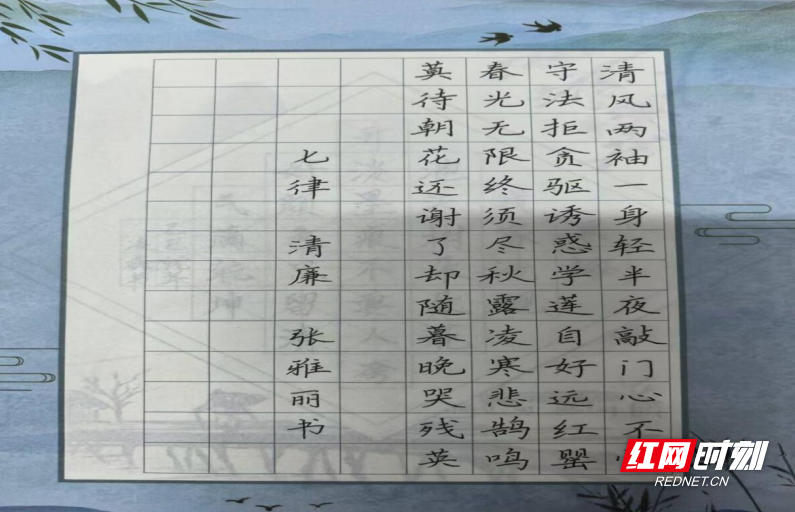 清风两袖一身轻半夜敲门心不
守法拒贪驱诱惑学莲自好远红罂
春光无限终须尽秋露凌寒悲鹄鸣
莫待朝花还谢了却随暮晚哭残英
七律 清廉 张雅丽书
红网时刻
REDNET.CN